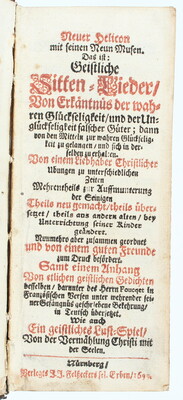 Neuer Helicon
mit seinen Neun Musen.
Das ist:
Geistliche
Sitten-Lieder/
Von Erkäntnüs der wah-
ren Glückseligkeit/ und der Un-
glückseligkeit falscher Güter; dann
von den Mitteln zur wahren Glückselig-
keit zu gelangen/ und sich in der-
selben zu erhalten.
Von einem Liebhaber Christlicher
Übungen zu unterschiedlichen
Zeiten
Mehrentheils zur Auffmunterung
der Seinigen
Theils neu gemacht/ theils über-
setzet/ theils aus andern alten/ bey
Unterrichtung seiner Kinder
geändert.
Nunmehro aber zusammen geordnet
und von einem guten Freunde
zum Druck befördert.
Samt einem Anhang
Von etlichen geistlichen Gedichten
desselben/ darunter des Herrn Foucqet in
Französischen Versen unter wehrender sei-
ner Gefängnüs geschriebene Bekehrung/
in Teutsch übersetzet.
Wie auch
Ein geistliches Lust-Spiel/
Von der Vermählung Christi mit
der Seelen.
Nürnberg/
Verlegts J.J. Felßeckers sel. Erben/